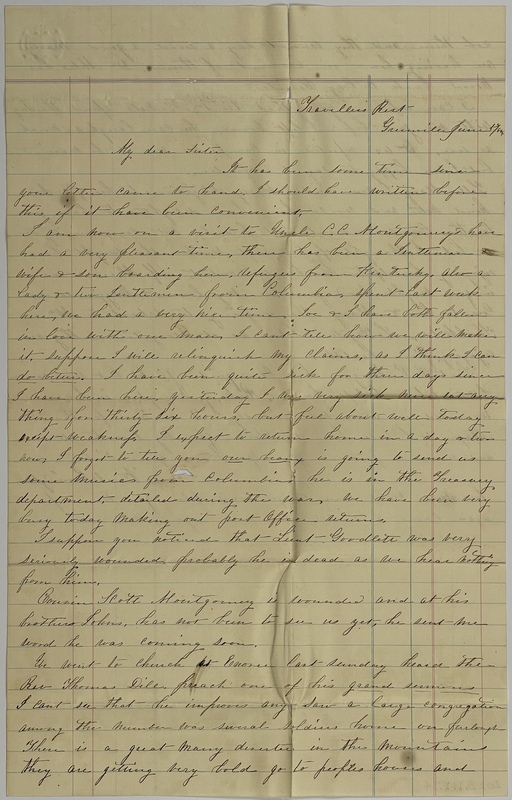 Travellers Rest
Greenville June
My dear Sister
It has been some time since
your letter came to hand, I should have written before
this if it have been convenient.
I am now on a visit to Uncle C,C, Montgomerys have
had a very pleasant time, there has been a Gentleman
wife & son boarding here, refugees from Kentucky, also a
Lady & two Gentlemen from Columbia, spent last week
here, we had a very nice time, Joe & I have both fallen
in love with one man, I cant tell how we will make
it, suppose I will relinquish my claims, as I think I can
do better. I have been quite sick for three days since
I have been here, yesterday I was very sick
thing for thirty-six hours, but feel about well today
except weakness I expect to return home in a day or two
now, I forgot to tell you our beaux is going to send us
some music from Columbia, he is in the Treasury
department, detailed during the war, we have been very
busy today making out post Office returns,
I suppose you noticed that Lieut Goodlett was very
seriously wounded, probably he is dead as we hear nothing
from him,
Cousin Scott Montgomery is wounded and at his
brothers Johns, has not been to see us yet, he sent me
word he was coming soon.
We went to church at last sunday heard the
Rev Thomas Dill, preach one of his grand sermons
I cant see that he improves any saw a large congregation
among the number was several soldiers home on furlough
There is a great many deserters in the Mountains
they are getting very bold go to peoples houses and